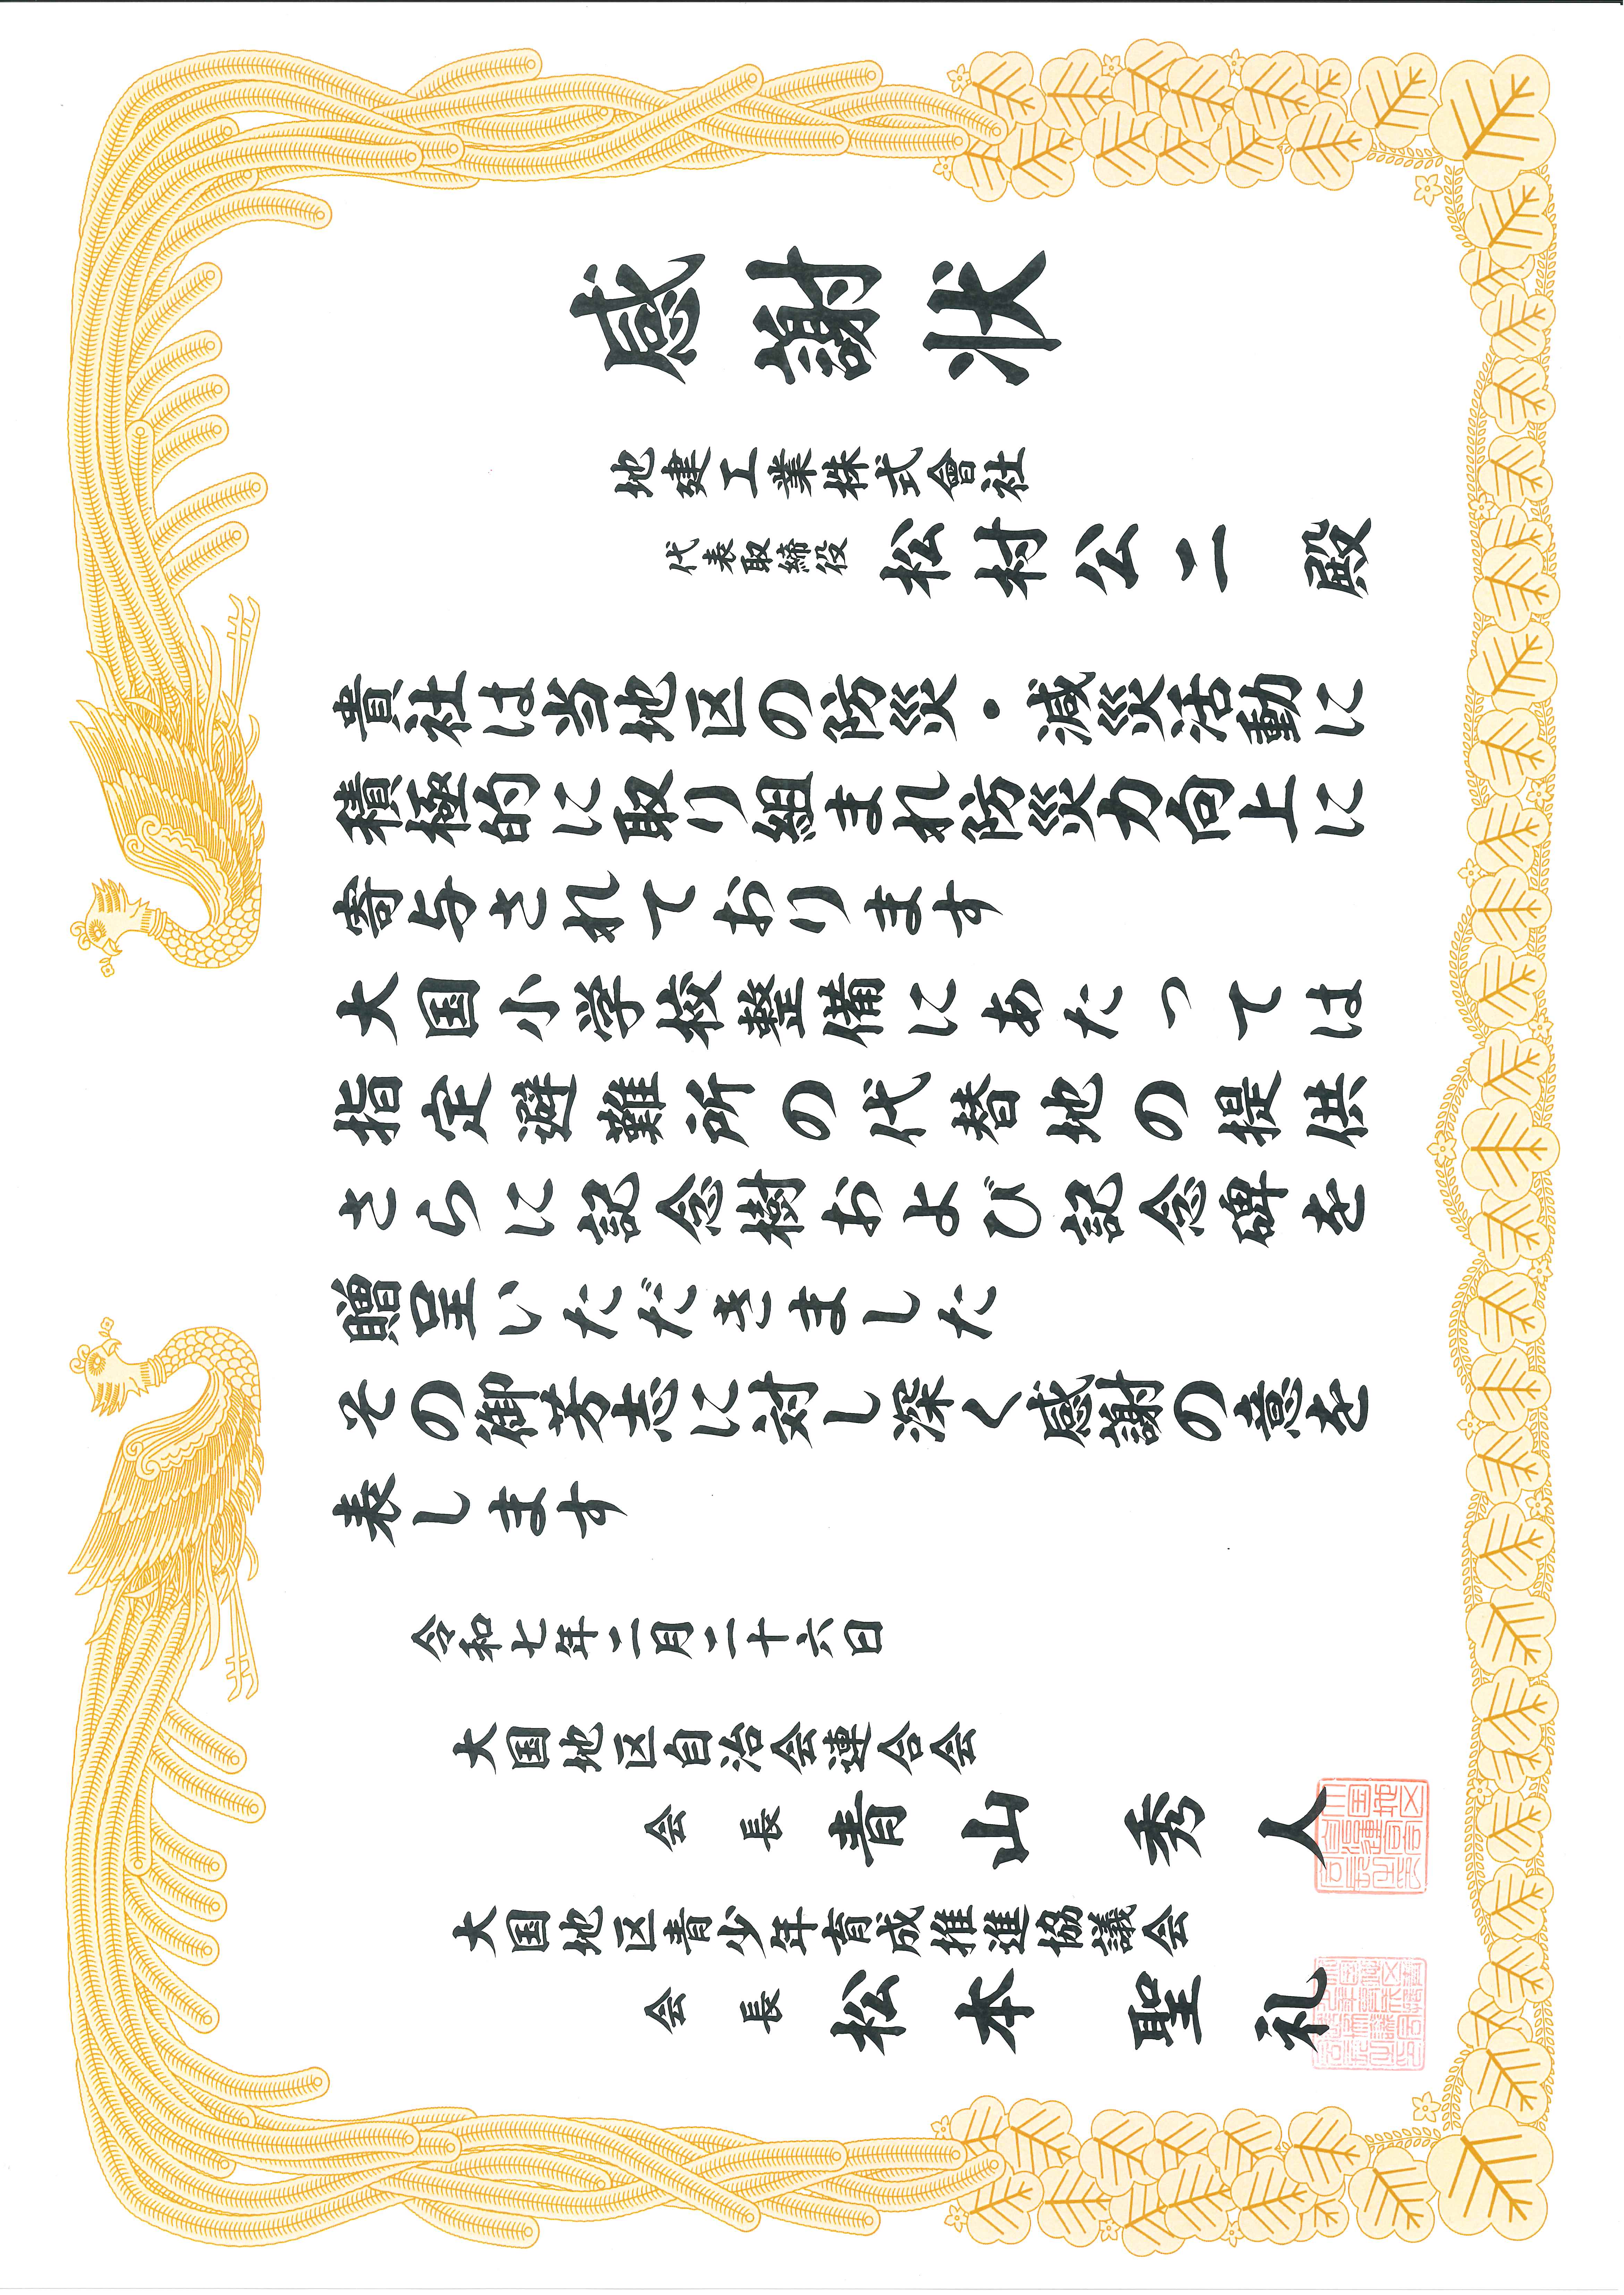 感謝状
地建工業株式會社
代表取締役 松村公二 殿
貴社は当地区の防災・減災活動に
積極的に取り組まれ防災力向上に
寄与されております
大国小学校整備にあたっては
指定避難所の代替地の提供
さらに記念樹および記念碑を
贈呈いただきました
その御芳志に対し深く感謝の意を
表します
令和七年二月二十六日
大国地区自治会連合会
会長 青山 秀人
大国地区青少年育成推進協議会
会長 松本 聖礼